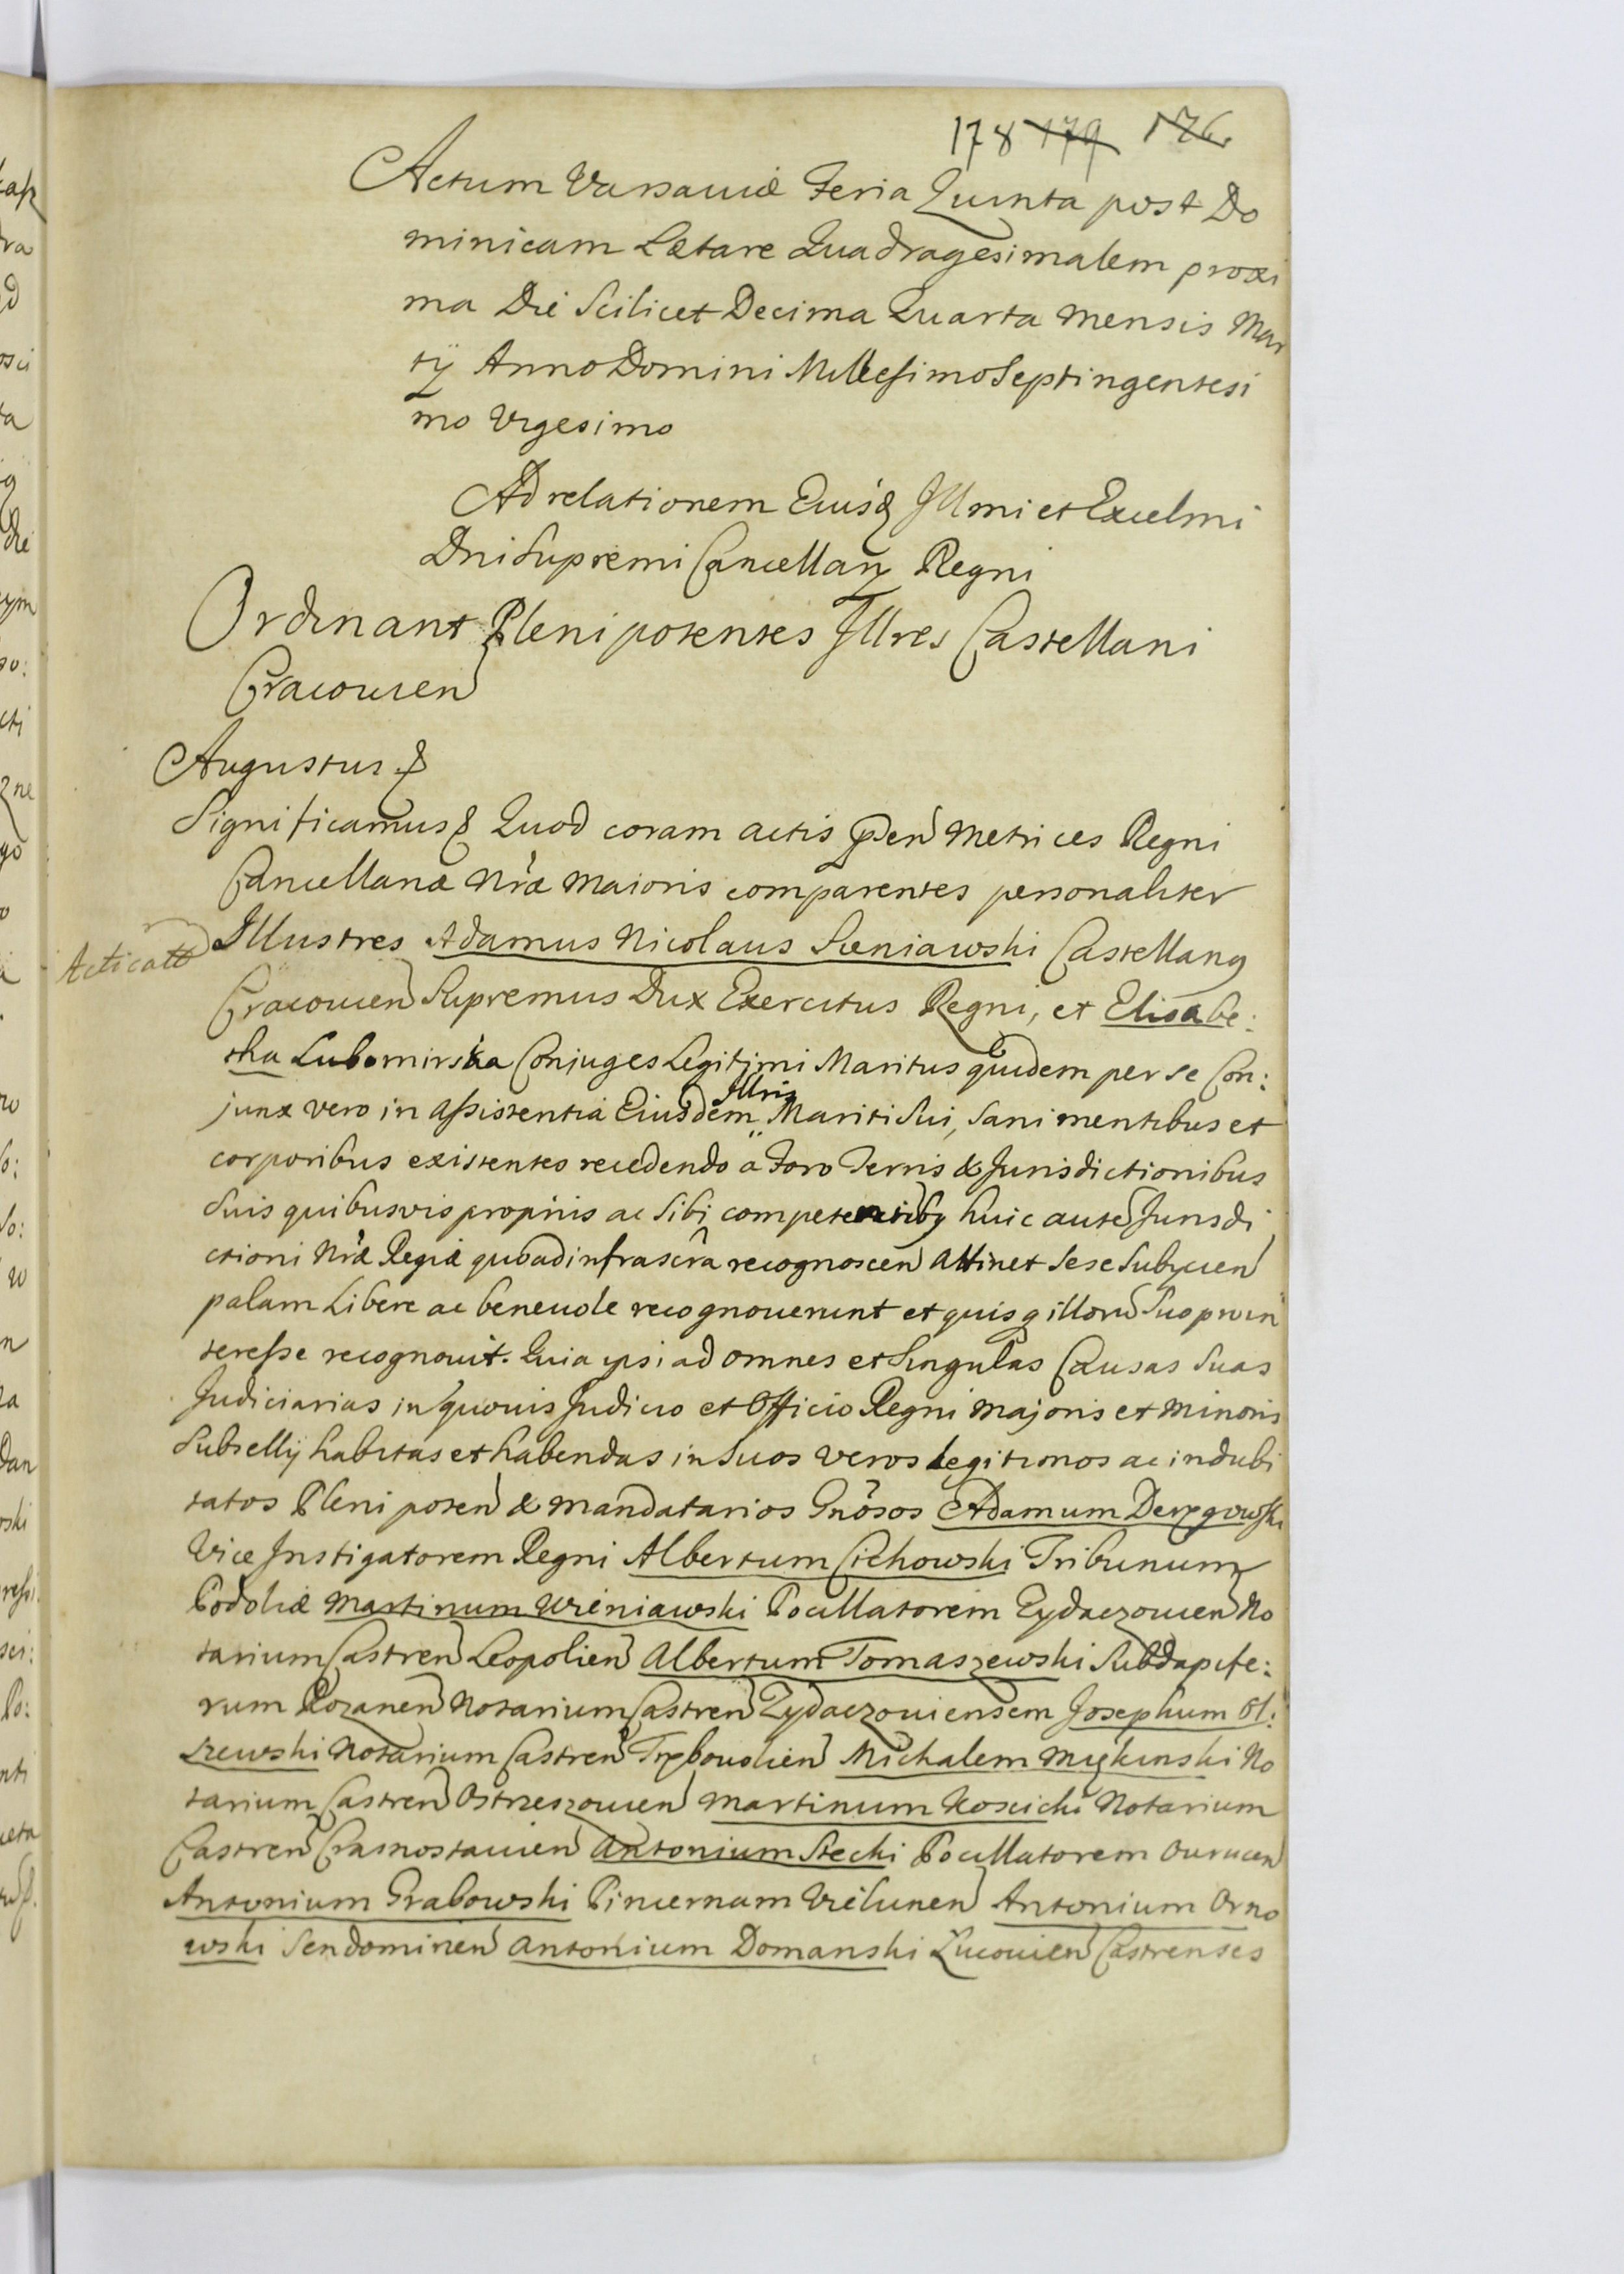 178 179 176.
Actum Varsaviæ Feria Quinta post Do
minicam Lætare Quadragesimalem proxi
ma Die Scilicet Decima Quarta Mensis Mar
tij Anno Domini Millesimo Septingentesi
mo Vigesimo
Ad relationem Eiusd Illmi et Excelmi
Dni Supremi Cancellarij Regni
Ordinant Plenipotentes Illres Castellani
Cracovien
Augustus &
Significamus & Quod coram actis pden Metrices Regni
Cancellariæ Nræ Maioris comparentes personaliter
Acticatt
Illustres Adamus Nicolaus Sieniawski Castellang
Cracovien Supremus Dux Exercitus Regni, et Elisabe:
tha Lubomirska Conjuges Legitimi Maritus quidem per se Con:
junx vero in assistentia Eiusdem Illris Mariti Sui, Sani mentibus et
corporibus existentes recedendo a Foro Terris & Jurisdictionibus
Suis quibusvis propriis ac Sibi competentibg huic aute Jurisdi
ctioni Nræ Regiæ quoad infrascra recognoscen Attinet Sese Subijcien
palam Libere ac benevole recognoverunt et quisq illoru Suo pro in
teresse recognovit. Quia ipsi ad omnes et Singulas Causas Suas
Judiciarias in quovis Judicio et Officio Regni Majoris et Minoris
Subsellij habitas et habendas in Suos Veros legitimos ac indubi
tatos Plenipoten & Mandatarios Gnosos Adamum Derpgowski
Vice Instigatorem Regni Albertum Cichowski Tribunum
Podoliæ Martinum Wieniawski Pocillatorem Zydaczovien No
tarium Castren Leopolien Albertum Tomaszewski Subdapife:
rum Rozanen Notarium Castren Zydaczoviensem Josephum Ol:
szewski Notarium Castren Trębovolien Michalem Miękinski No
tarium Castren Ostrzeszovien Martinum Koscicki Notarium
Castren Crasnostavien Antonium Stecki Pocillatorem Ovrucen
Antonium Grabowski Pincernam Vielunen Antonium Orno
wski Sendomirien Antonium Domanski Lucovien Castrenses